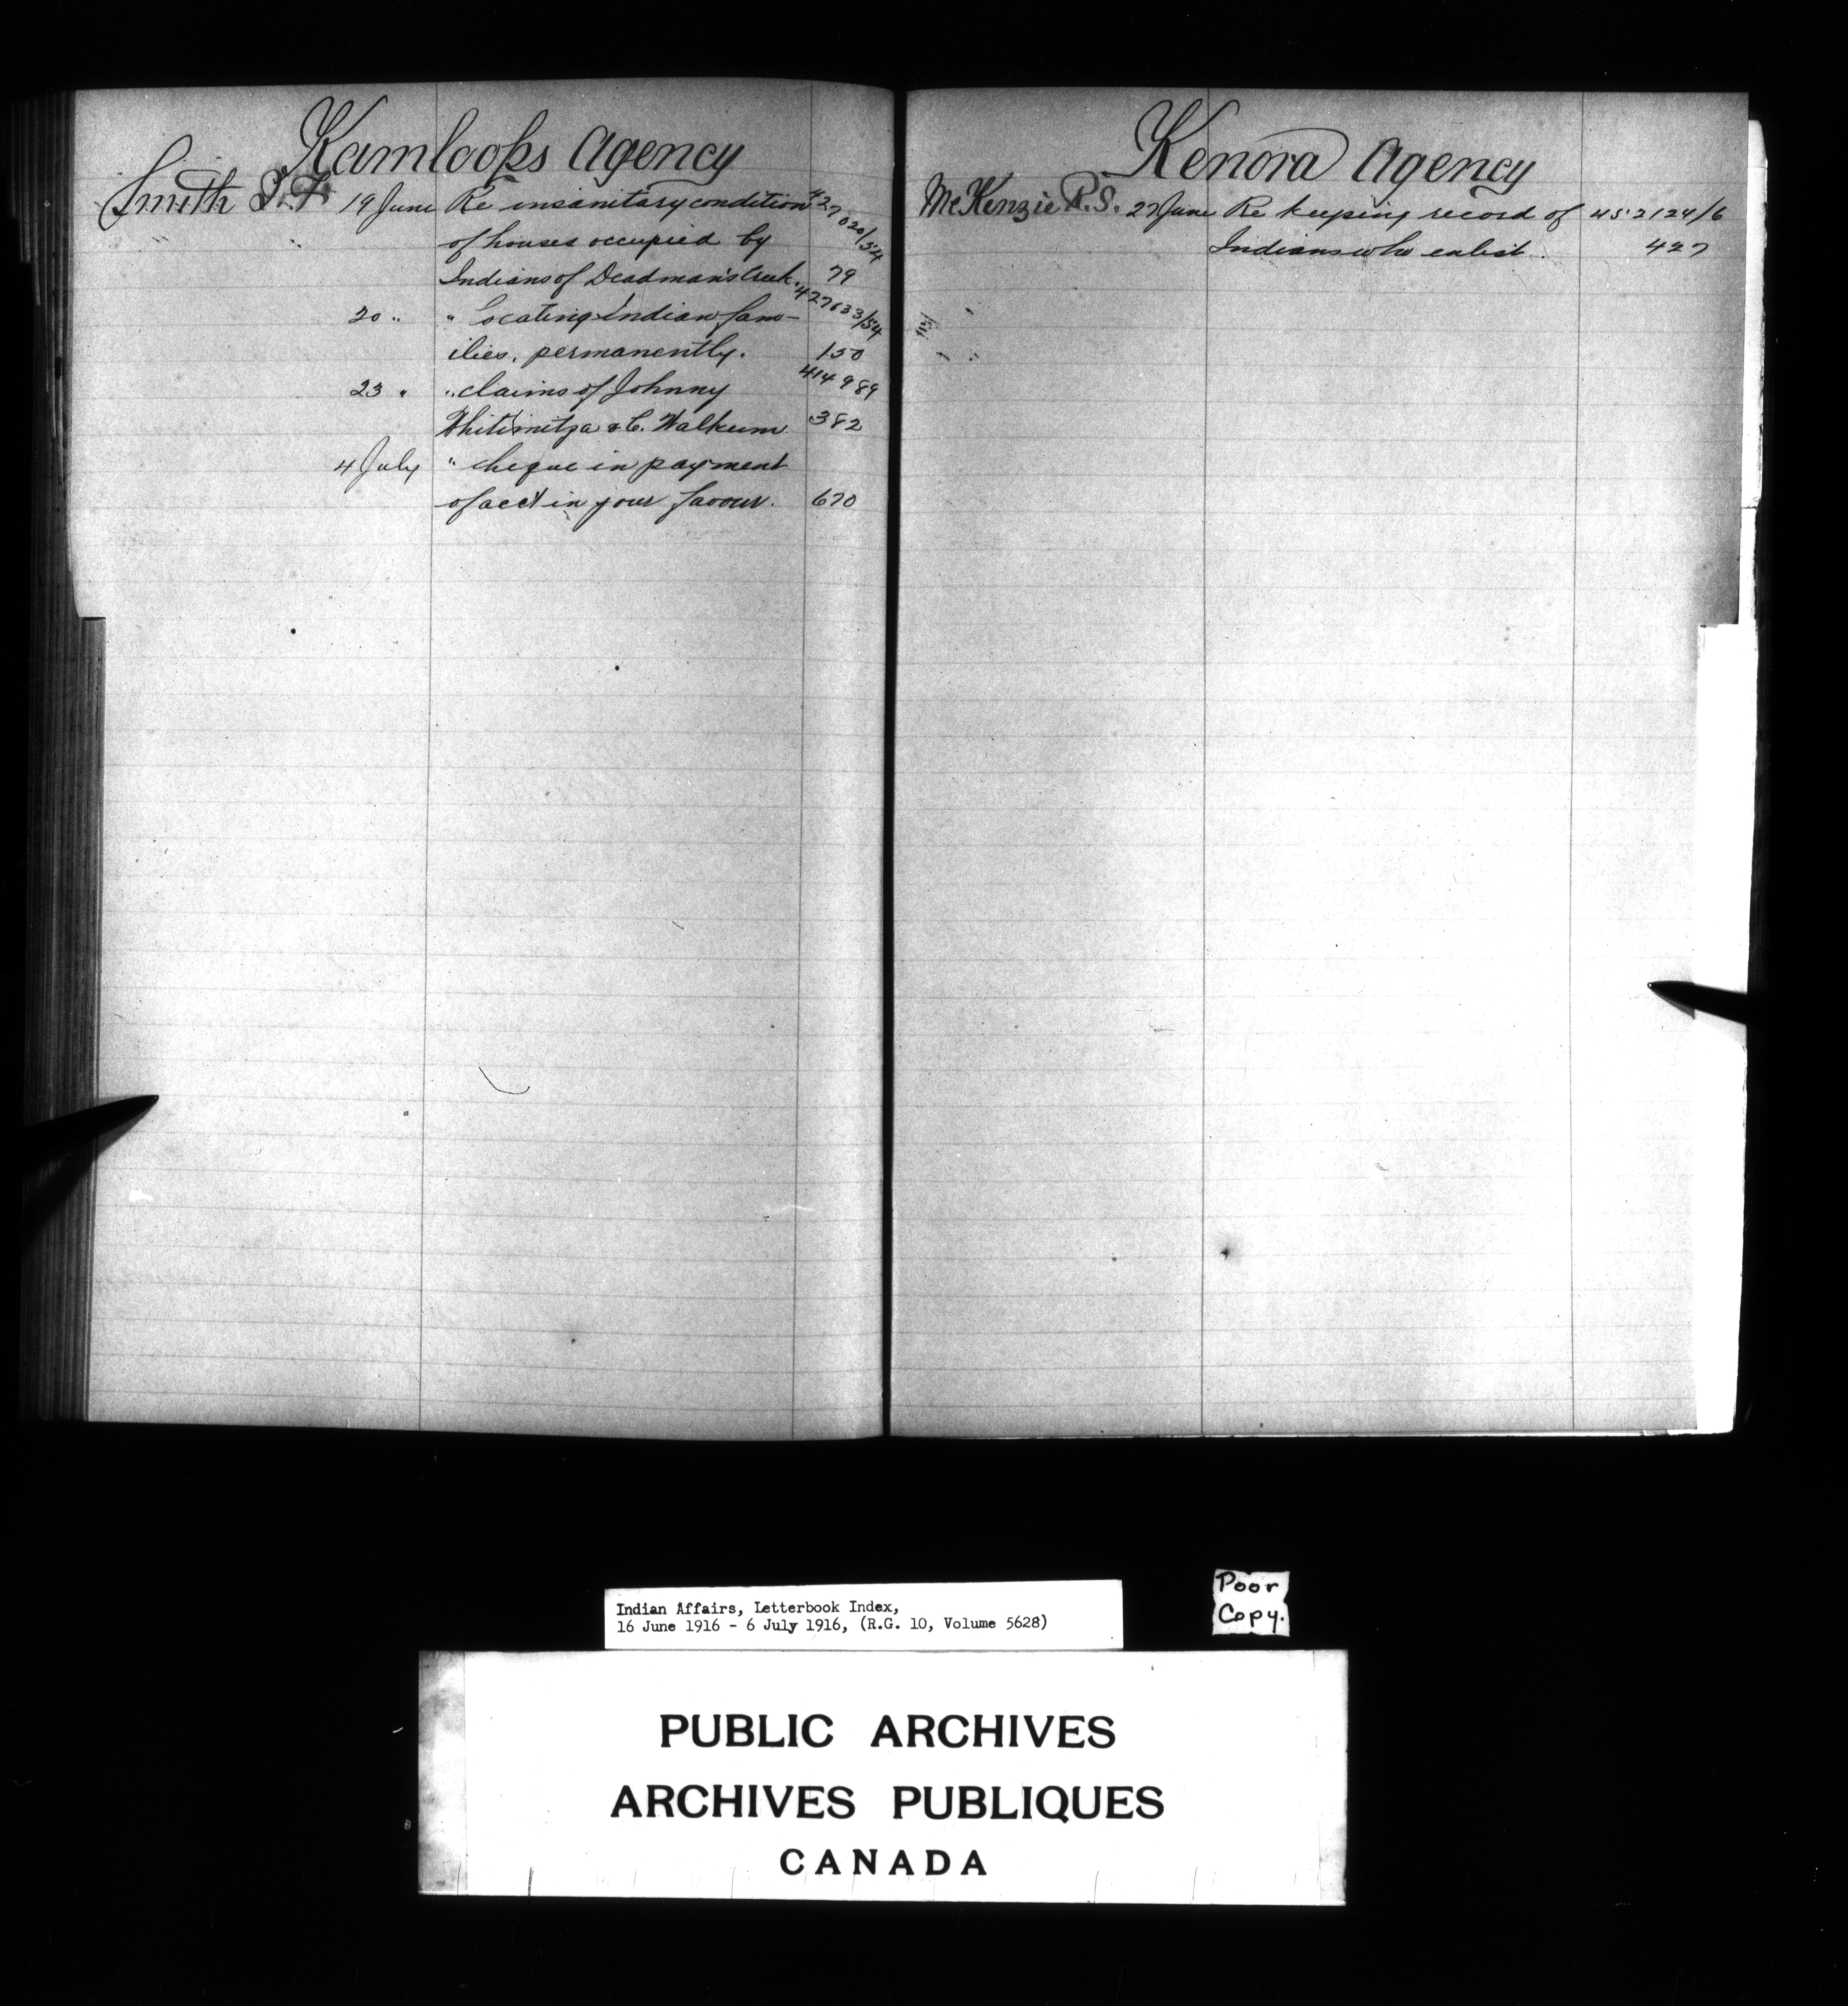 Kamloops Agency
Smith J.F. 19 June Re insanitary condition 427020/54
of houses occupied by
Indians of Deadman's Creek. 79
20 " " Locating Indian fam- 427633/54
ilies, permanently. 150
23 " " claims of Johnny 414989
& C. Walkem 382
4 July " cheque in payment
of acct in your favour. 670
Kenora Agency
McKenzie R.S. 27 June Re keeping record of 452124/6
Indians who enlist. 427
Indian Affairs, Letterbook Index,
16 June 1916 - 6 July 1916, (R.G. 10, Volume 5628)
Poor
Copy.
PUBLIC ARCHIVES
ARCHIVES PUBLIQUES
CANADA